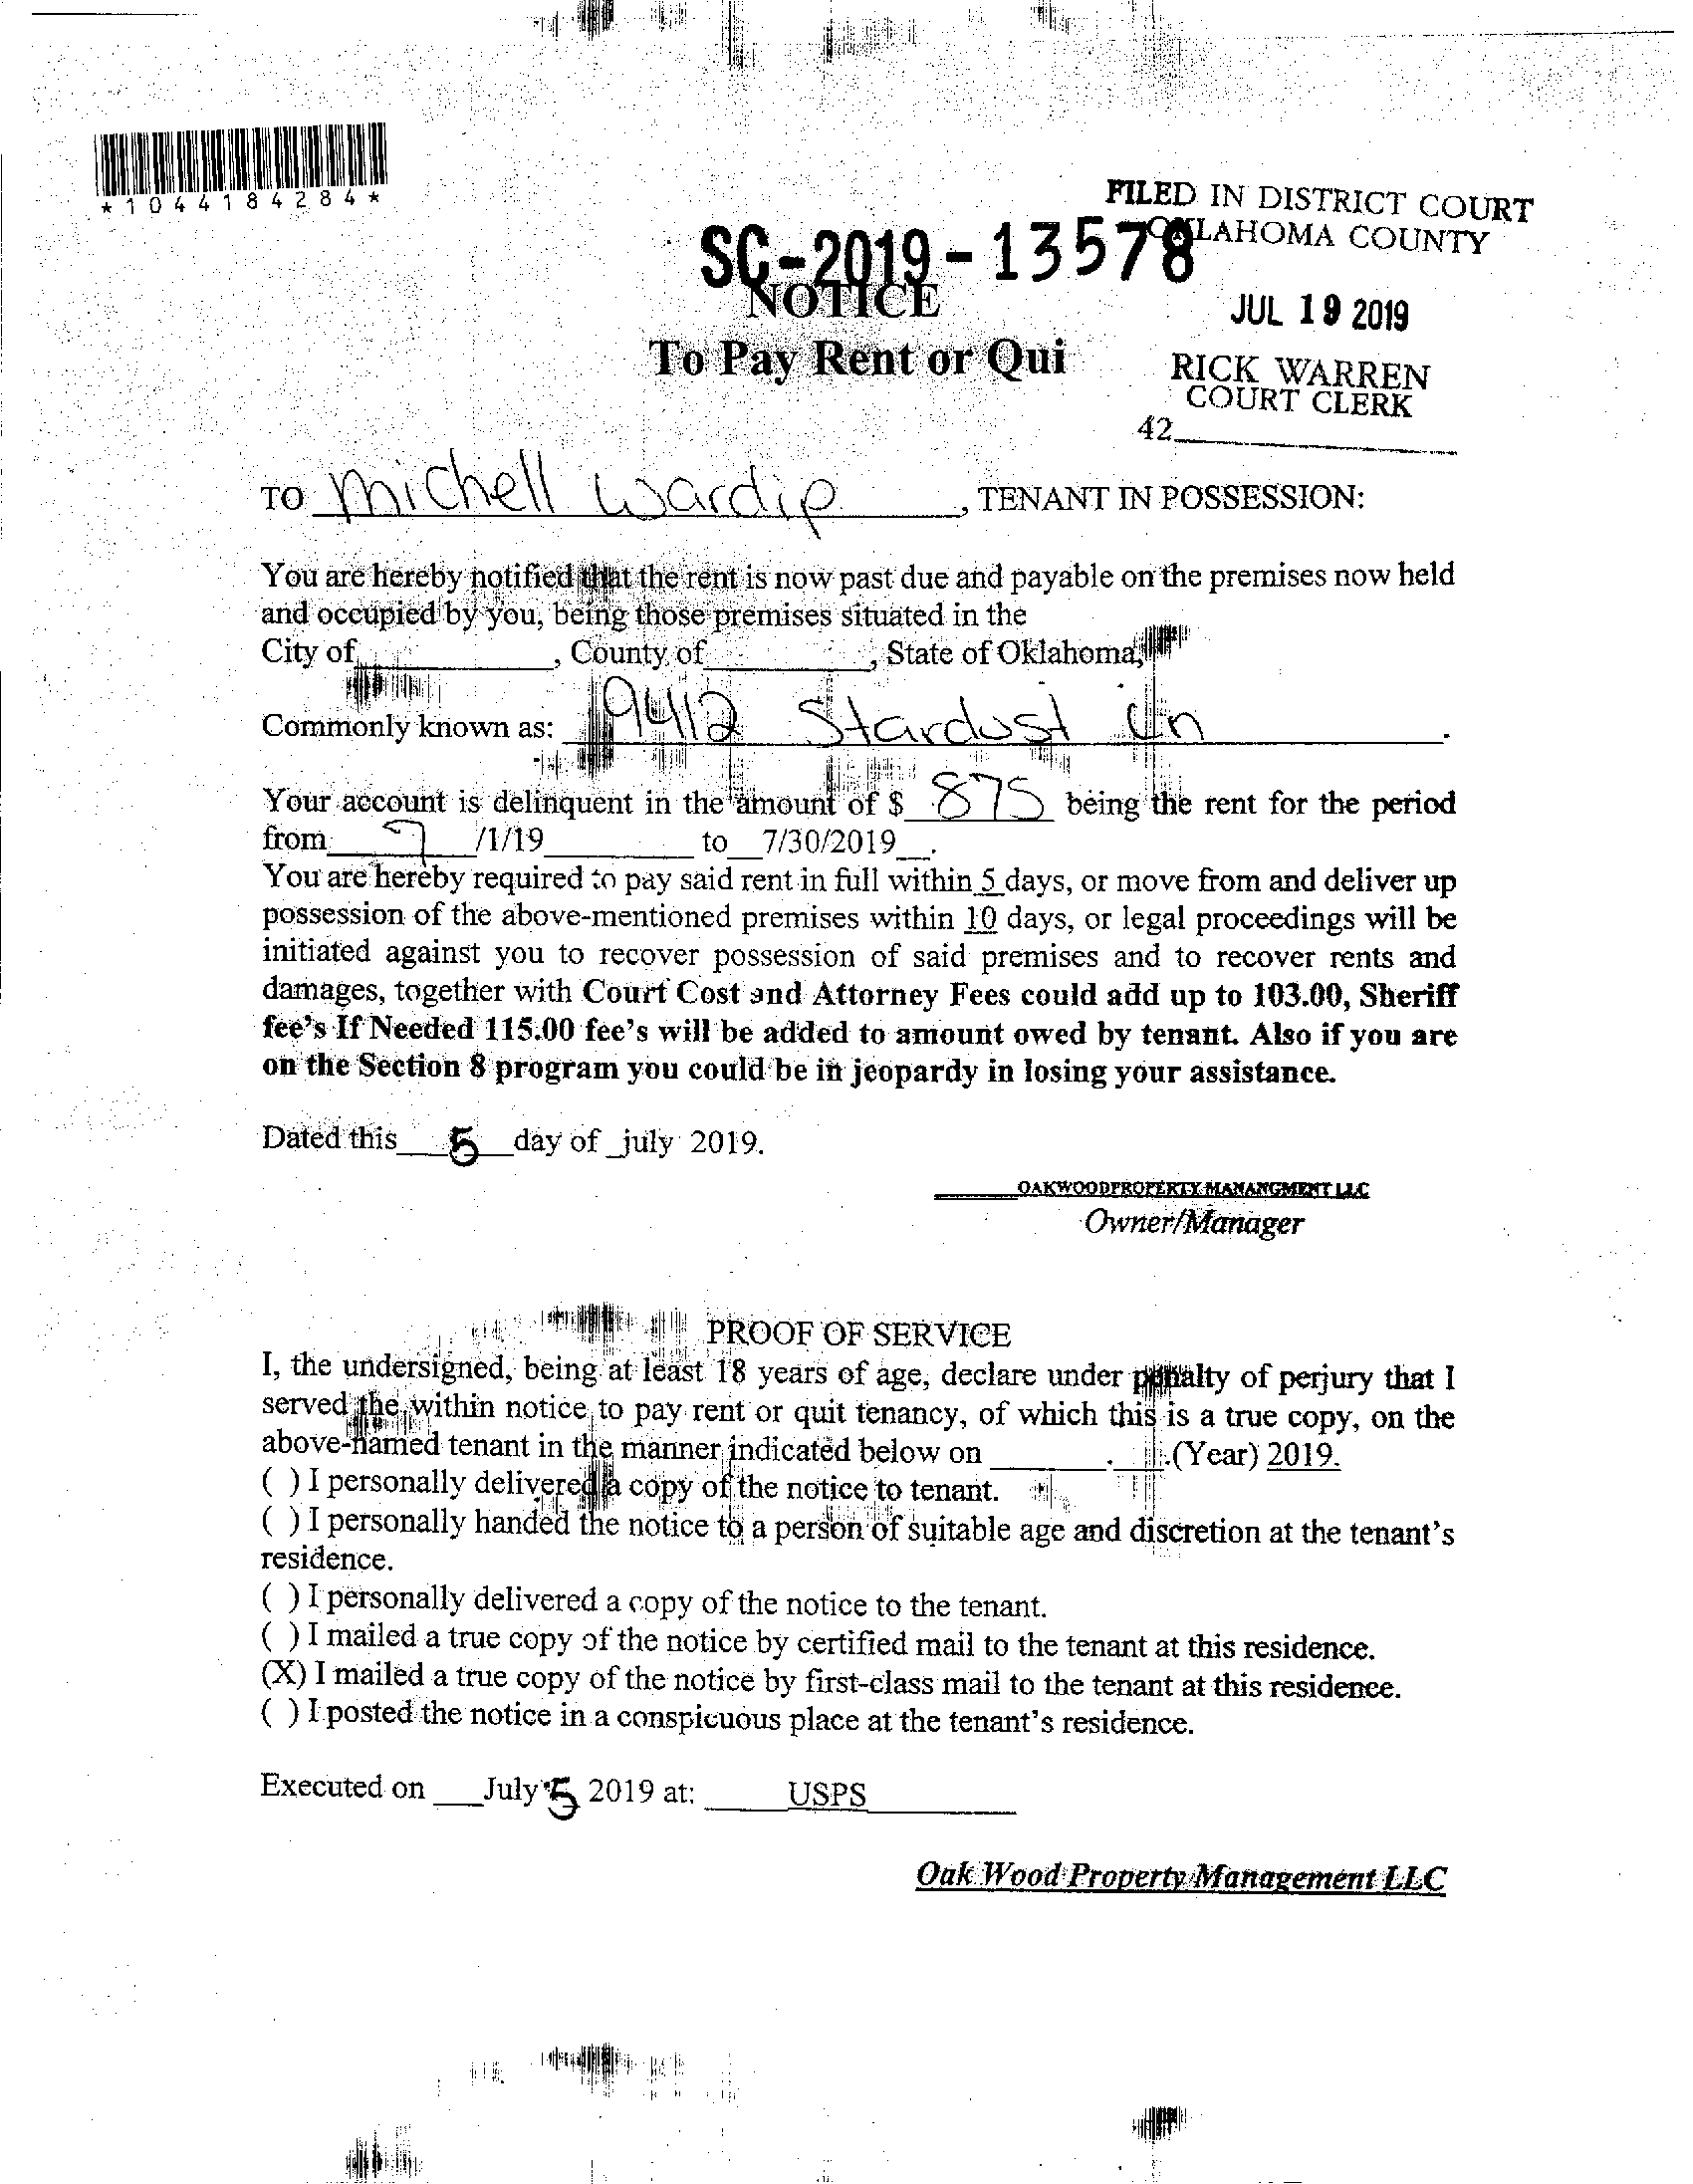 *1044184284*
FILED IN DISTRICT COURT
OKLAHOMA COUNTY
SC-2019-13578
NOTICE
JUL 19 2019
To Pay Rent or Qui
RICK WARREN
COURT CLERK
42
TO Michell Wardip, TENANT IN POSSESSION:
You are hereby notified that the rent is now past due and payable on the premises now held
and occupied by you, being those premises situated in the
City of , County of , State of Oklahoma,
Commonly known as: 9412 Stardust Ln .
Your account is delinquent in the amount of $ 875 being the rent for the period
from 7 /1/19 to 7/30/2019 .
You are hereby required to pay said rent in full within 5 days, or move from and deliver up
possession of the above-mentioned premises within 10 days, or legal proceedings will be
initiated against you to recover possession of said premises and to recover rents and
damages, together with Court Cost and Attorney Fees could add up to 103.00, Sheriff
fee's If Needed 115.00 fee's will be added to amount owed by tenant. Also if you are
on the Section 8 program you could be in jeopardy in losing your assistance.
Dated this 5 day of july 2019.
OAKWOODPROPERTY MANANGMENT LLC
Owner/Manager
PROOF OF SERVICE
I, the undersigned, being at least 18 years of age, declare under penalty of perjury that I
served the within notice to pay rent or quit tenancy, of which this is a true copy, on the
above-named tenant in the manner indicated below on . .(Year) 2019.
( ) I personally delivered a copy of the notice to tenant.
( ) I personally handed the notice to a person of suitable age and discretion at the tenant's
residence.
( ) I personally delivered a copy of the notice to the tenant.
( ) I mailed a true copy of the notice by certified mail to the tenant at this residence.
(X) I mailed a true copy of the notice by first-class mail to the tenant at this residence.
( ) I posted the notice in a conspicuous place at the tenant's residence.
Executed on July 5 2019 at: USPS
Oak Wood Property Management LLC